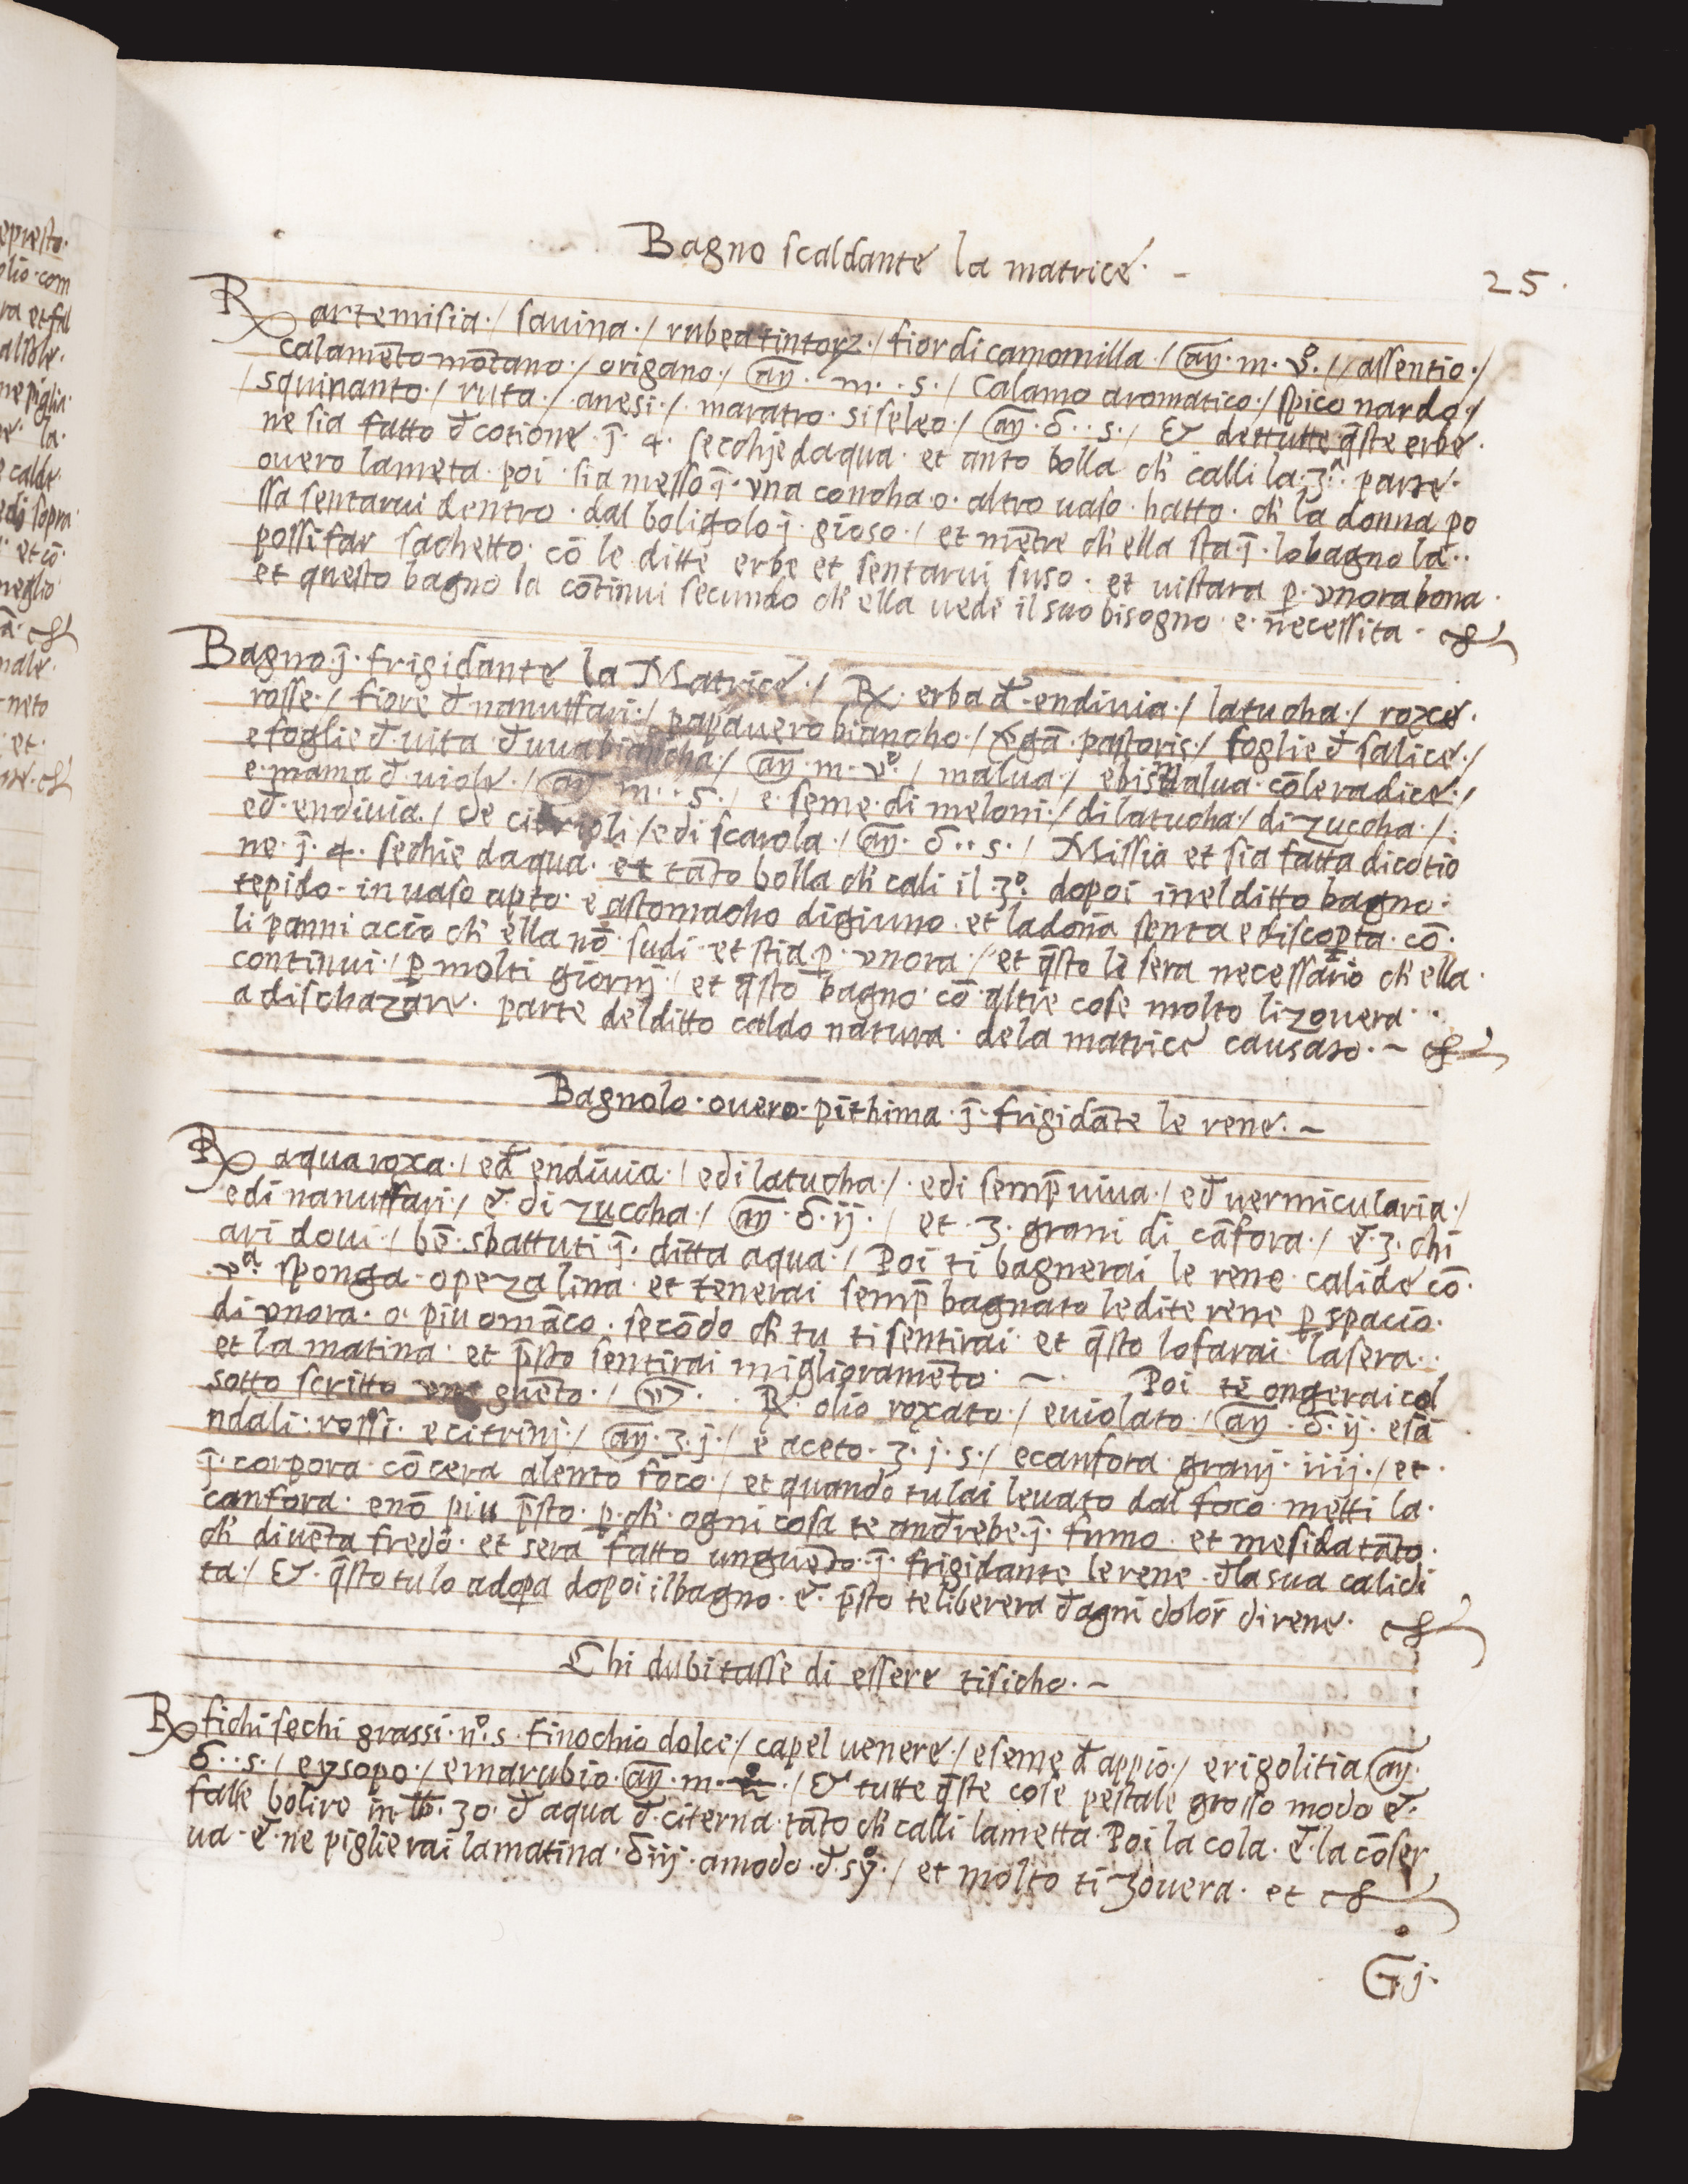 Bagno scaldante la matrice· -
25·
℞ artemisia·/ sauina·/ rubea tintorꝝ·/ fior di camomilla·/ añ· m· vº·// assentio·/
calamēto mōtano·/ origano·/ añ· m··s·/ Calamo aromatico·/ spico nardo·/
squinanto·/ ruta·/ anesi·/ maratro· siseleo·/ añ· δ··s·/ & dettutte q̄ste erbe·
ne sia fatto đcotione·j̄· 4· secchje daqua· et anto bolla ch' calli la·3ª· parte·
ouero lameta· poi· sia messo j̄· vna concha·o· altro uaso· hatto· ch' la donna po
ssa sentarui dentro· dal boligolo·j· gioso·/ et mētre ch' ella sta·j̄· lo bagno la··
possi far sachetto· cō le ditte erbe et sentarui suso· et uistara p̱· vnora bona·
et questo bagno la cōtinui secundo ch' ella uede il suo bisogno·e·necessita·
Bagno·j̄·frigidante la Matrice·/ ℞ erba đ·endiuia·/ latucha·/ roxe·
rosse·/ fiore đ nanuffari·/ papauero biancho·/ v̄gā·pastoris·/ foglie đ salice·/
e foglie đ·uita·đ uua biancha·/ añ·m·vº·/ malua·/ ebismalua·cōle radice·/
e·mama đ·uiole·/ añ m··s·/ e·seme·di meloni·/ di latucha·/ di zuccha·/
eđ·endiuia·/ de citrioli /e di scarola·/ añ·δ··s·/ Missia et sia fatta dicotio
ne·j̄·4·sechie daqua·et tāto bolla ch' cali il·3º· dopoi inel ditto bagno·
tepido· in uaso apto·e astomacho digiuno·et la dona senta e discop̱ta·cō·
li panni acio ch' ella nō sudi·et stia p̱·vnora·/ et q̄sto le sera necessario ch' ella·
continui·/ p̱ molti giornj·/ et q̄sto bagno·cō altre cose molto li zouera··
a dischazare·parte del ditto caldo natura·dela matrice causato·~
Bagnolo·ouero·pithima·j̄·frigidāte le rene·~
℞ aqua roxa·/ eđ endiuia·/ e di latucha·/·e di semp̄ uiua·/ eđ uermicularia·/
e di nanuffari·/ e·di zuccha·/ añ·δ·ij·/ et·3·grani di cāfora·/ e·3·chi
ari doui·/ bē·sbattuti·j̄·ditta aqua·/ Poi ti bagnerai le rene·calide cō·
·vª·sponga·o peza lina·et tenerai semp̄ bagnato le dite rene p̱ spacio·
di vnora·o·piu o māco·secōdo ch' tu ti sentirai·et q̄sto lo farai·la sera··
et la matina·et p̄sto sentirai miglioramēto·~· Poi te ongerai col
sotto scritto unguēto·/ v· ℞ olio roxato·/ e uiolato·/ añ·δ·ij·esā
ndali·rossi·e citrinj·/ añ·ʒ·j·/ e aceto·ʒ·j·s·/ e canfora granj·iiij·/ et·
j̄·corpora·cō cera alento foco·/ et quando tu lai leuato dal foco·metti la·
canfora·e nō piu p̄sto·p̱·ch'·ogni cosa te anđrebe·j̄·fumo·et mesida tāto·
ch' diuēta fredo·et sera fatto unguēto·j̄·frigidante le rene·đla sua calidi
ta·/ &·q̄sto tu lo adop̱a dopoi il bagno·e·p̄sto te liberera đagni dolor di rene·
Chi dubitasse di essere tisicho·~
℞ fichi sechi grassi·nº·s·finochio dolce·/ capel uenere·/ e seme đ appio·/ e rigolitia añ·
δ··s·/ e ysopo·/ e marubio·añ·m··/ & tutte q̄ste cose pestale grosso modo e·
falle bolire in ℔·30·đ aqua đ·citerna·tāto ch' calli la metta·Poi la cola·e·la cōser
ua·e·ne piglierai la matina·δ iij·amodo·đ·syº·/ et molto ti zouera·et
G·j·